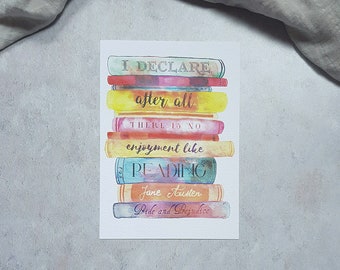 I DECLARE
after all
THERE IS NO
enjoyment like
READING
Jane Austen
Pride and Prejudice